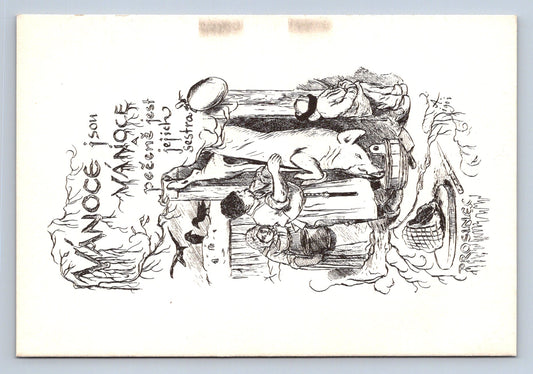 VÁNOCE jsou
VÁNOCE
A
pečeně jest
jejich
sestra
PROSINEC